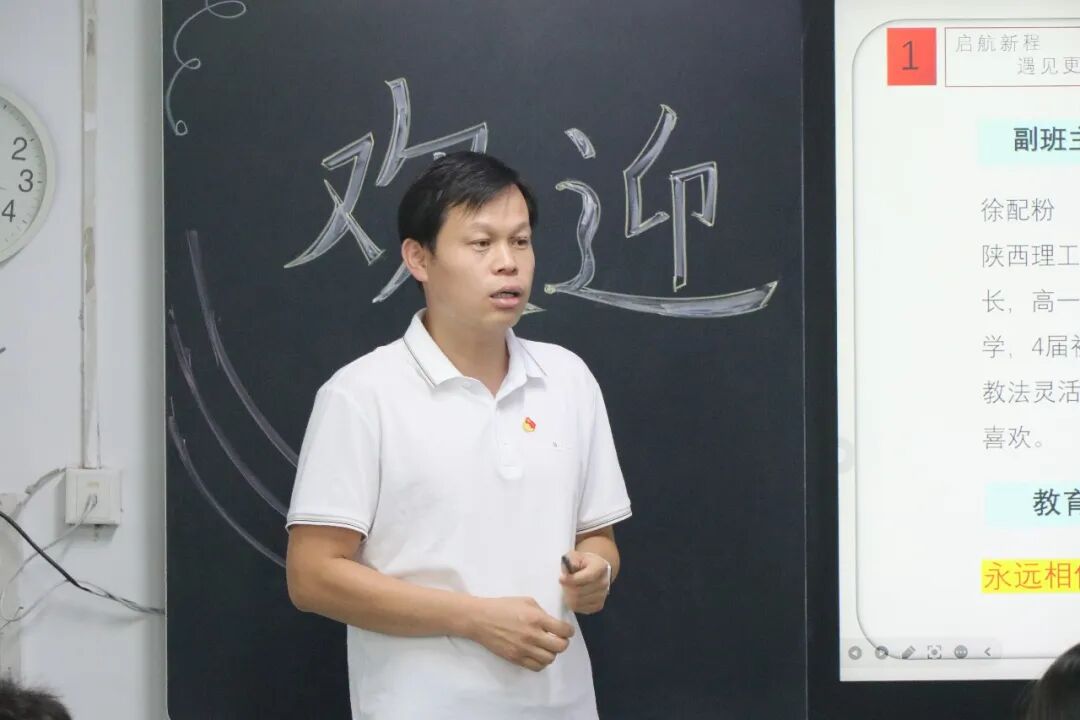 2
3
4
欢迎
1
启航新程
遇见更
副班主
徐配粉
陕西理工
长，高一
学，4届初
教法灵活
喜欢。
教育
永远相信